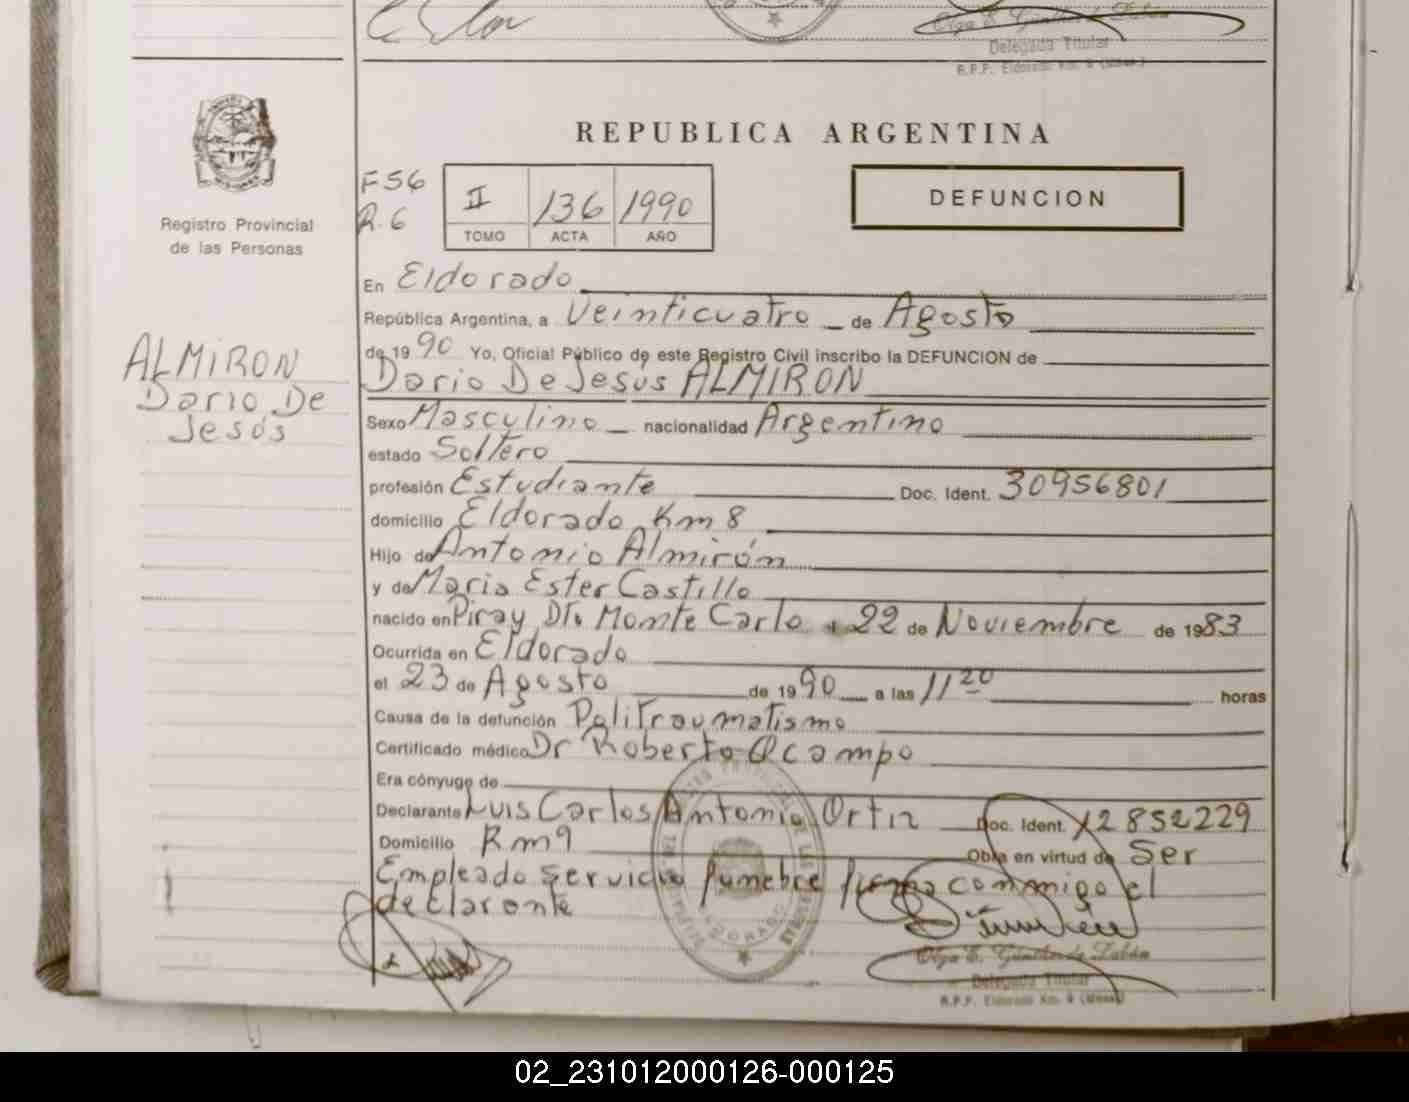 Olga E. Günther de Zabón
Delegada Titular
R.P.P. Eldorado Km. 9 (Mnes.)
REPUBLICA ARGENTINA
F 56
R. 6
II 136 1990
TOMO ACTA AÑO
DEFUNCION
Registro Provincial
de las Personas
ALMIRON
Dario De
Jesús
En Eldorado
República Argentina, a Veinticuatro de Agosto
de 1990 Yo, Oficial Público de este Registro Civil inscribo la DEFUNCION de
Dario De Jesús ALMIRON
Sexo Masculino nacionalidad Argentino
estado Soltero
profesión Estudiante Doc. Ident. 30956801
domicilio Eldorado Km 8
Hijo de Antonio Almirón
y de Maria Ester Castillo
nacido en Piray Dto. Monte Carlo a 22 de Noviembre de 1983
Ocurrida en Eldorado
el 23 de Agosto de 1990 a las 11 20 horas
Causa de la defunción Politraumatismo
Certificado médico Dr Roberto Ocampo
Era cónyuge de
Declarante Luis Carlos Antonio Ortiz Doc. Ident. 12852229
Domicilio Km 9 Obra en virtud de Ser
Empleado servicio funebre firma conmigo el
declarante
Olga E. Günther de Zabón
Delegada Titular
R.P.P. Eldorado Km. 9 (Mnes.)
02_231012000126-000125